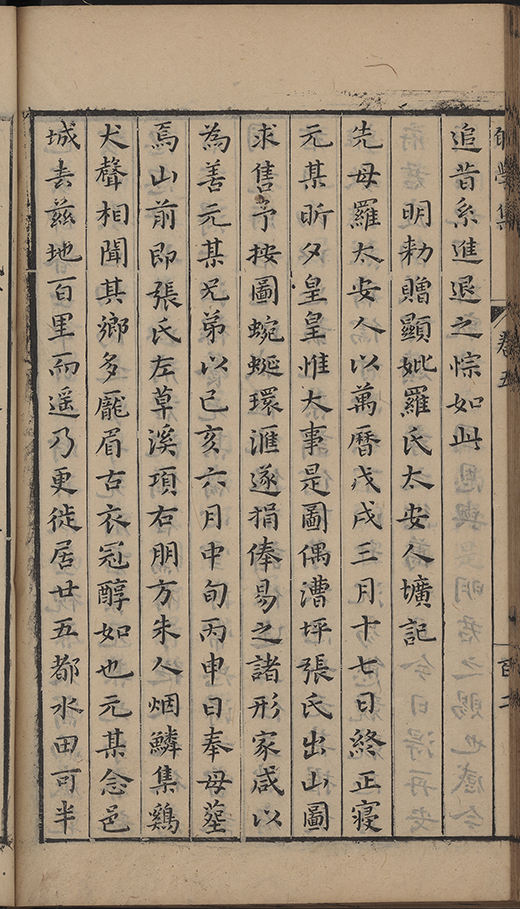 卷五
百二
追昔系進退之悰如此
明勑贈顯妣羅氏太安人壙記
先母羅太安人以萬曆戊戌三月十七日終正寢
元某昕夕皇皇惟大事是圖偶漕坪張氏出山圖
求售予按圖蜿蜒環滙遂捐俸易之諸形家咸以
為善元某兄弟以己亥六月中旬丙申日奉母塟
焉山前即張氏左草溪項右朋方朱人烟鱗集鷄
犬聲相聞其鄉多龐眉古衣冠醇如也元某念邑
城去兹地百里而遥乃更徙居廿五都水田可半